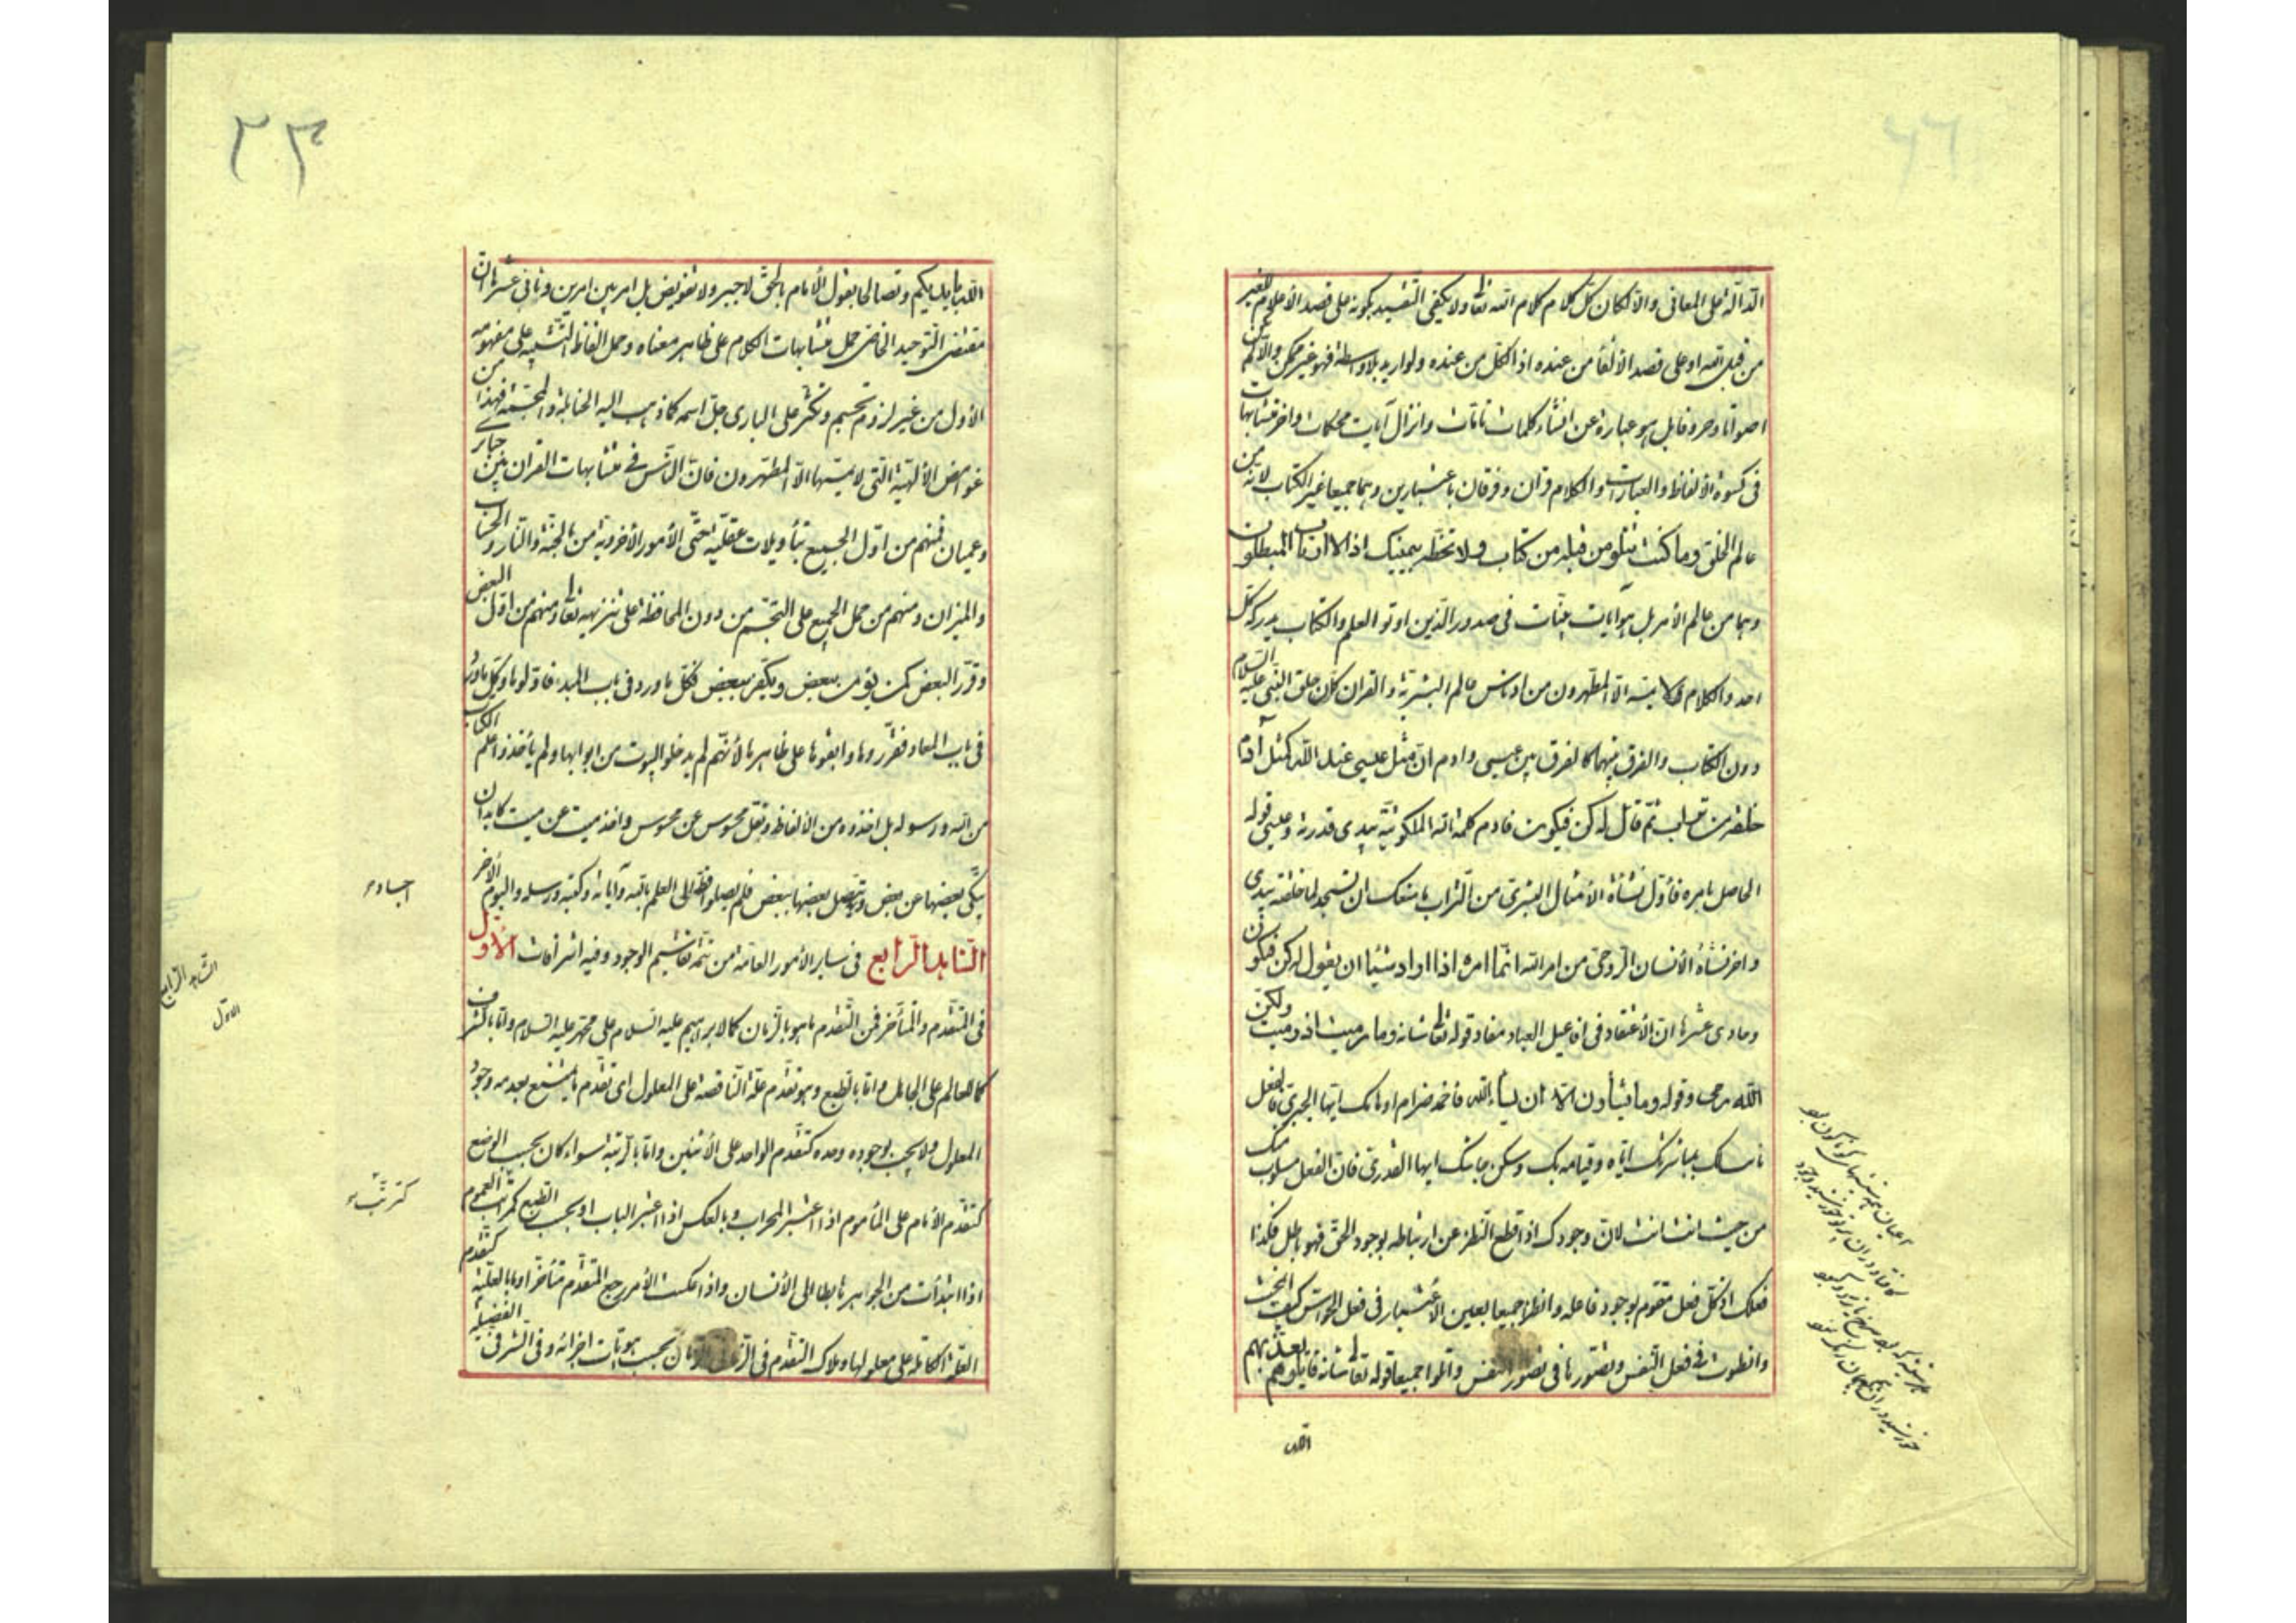 الدالة على المعانى والا لكان كل كلام كلام الله تعا ولا يكفى التقييد بكونه على قصد الاعلام للغير
من قبل الله او على قصد الالقاء من عنده اذ الكل من عنده ولو اريد بلا واسطة فهو غير ممكن والا لم يكن
اصواتا وحروفا بل هو عبارة عن انشاء كلمات تامات وانزال آيات محكمات واخر متشابهات
فى كسوة الالفاظ والعبارات والكلام قران وفرقان باعتبارين وهما جميعا غير الكتاب لانه من
عالم الخلق وما كنت تتلو من قبله من كتاب ولا تخطه بيمينك اذا لارتاب المبطلون
وهما من عالم الأمر بل هو ايات بينات فى صدور الذين اوتو العلم والكتاب يدركه كل
احد والكلام لا يمسه الا المطهرون من ادناس عالم البشرية والقران كان خلق النبى عليه السلام
دون الكتاب والفرق بينهما كالفرق بين عيسى وادم ان مثل عيسى عند الله كمثل آدم
خلقه من تراب ثم قال له كن فيكون فادم كلمة الله المكتوبة بيدى قدرته وعيسى قوله
الحاصل بامره فأول نشأة الأمثال البشرى من التراب ما منعك ان تسجد لما خلقت بيدى
واخر نشأة الأنسان الروحى من امر الله انما امره اذا اراد شيئا ان يقول له كن فيكون
وحادى عشرها ان الأعتقاد فى افاعيل العباد مفاد قوله تعا شانه وما رميت اذ رميت ولكن
الله رمى وقوله وما تشاؤن الا ان يشاء الله فاخمد ضرام اوهامك ايها الجبرى فالفعل
ثابت لك بمباشرتك اياه وقيامه بك وسكن جاشك ايها القدرى فان الفعل مسلوب منك
من حيث انت انت لان وجودك اذا قطع النظر عن ارتباطه بوجود الحق فهو باطل فكذا
فعلك اذ كل فعل متقوم بوجود فاعله وانظرا جميعا بعين الاعتبار فى فعل الحواس كيف انحشت
وانطوت فى فعل النفس وتصورها فى تصور النفس واتلوا جميعا قوله تعا شانه قاتلوهم يعذبهم
الله
الله بايديكم وتصالحا بقول الأمام بالحق لا جبر ولا تفويض بل امر بين امرين وثانى عشرها ان
مقتضى التوحيد الخاصى حمل متشابهات الكلام على ظاهر معناه وحمل الفاظ التشبيه على مفهومه
الاول من غير لزوم تجسيم وتكثر على البارى جل اسمه كما ذهب اليه الحنابلة والمجسمة فهذا من
غوامض الألهية التى لا يمسها الا المطهرون فان الناس فى متشابهات القران بين حيارى
وعميان فمنهم من اول الجميع بتأويلات عقلية حتى الأمور الأخروية من الجنة والنار والحساب
والميزان ومنهم من حمل الجميع على التجسم من دون المحافظة على تنزيهه تعا ومنهم من اول البعض
وقرر البعض كمن يؤمن ببعض ويكفر ببعض فكل ما ورد فى باب المبدء فاولوها وكل ما ورد
فى باب المعاد فقرروها وابقوها على ظاهرها لأنهم لم يدخلوا البيوت من ابوابها ولم يأخذوا علم الكتاب
من الله ورسوله بل اخذوه من الألفاظ ونقل محسوس عن محسوس واخذ ميت عن ميت كابدان
يتكى بعضها عن بعض ويتصل بعضها ببعض فلم يصلوا قط الى العلم بالله وآياته وكتبه ورسله واليوم الأخر
اجساد
الشاهد الرابع فى ساير الأمور العامة من تتمة تقاسيم الوجود وفيه اشراقات الاول
الشاهد الرابع
الاول
فى المتقدم والمتأخر فمن التقدم ما هو بالزمان كما لابراهيم عليه السلام على محمد عليه السلام واما بالشرف
كما للعالم على الجاهل واما بالطبع وهو تقدم علة الناقصة على المعلول اى تقدم ما يمتنع بعدمه وجود
المعلول ولا يجب بوجوده وحده كتقدم الواحد على الأثنين واما بالرتبة سواء كان بحسب الوضع
كتقدم الأمام على المأموم اذا اعتبر المحراب وبالعكس اذا اعتبر الباب او بحسب الطبع كمراتب العموم
كترتب
اذا ابتدأت من الجواهر هابطا الى الأنسان واذا عكست الأمر رجع المتقدم متأخرا وبالعلية كتقدم
العلة الكاملة على معلولها وملاك التقدم فى الزمان بحسب هويات اجزائه وفى الشرف الفضيلة